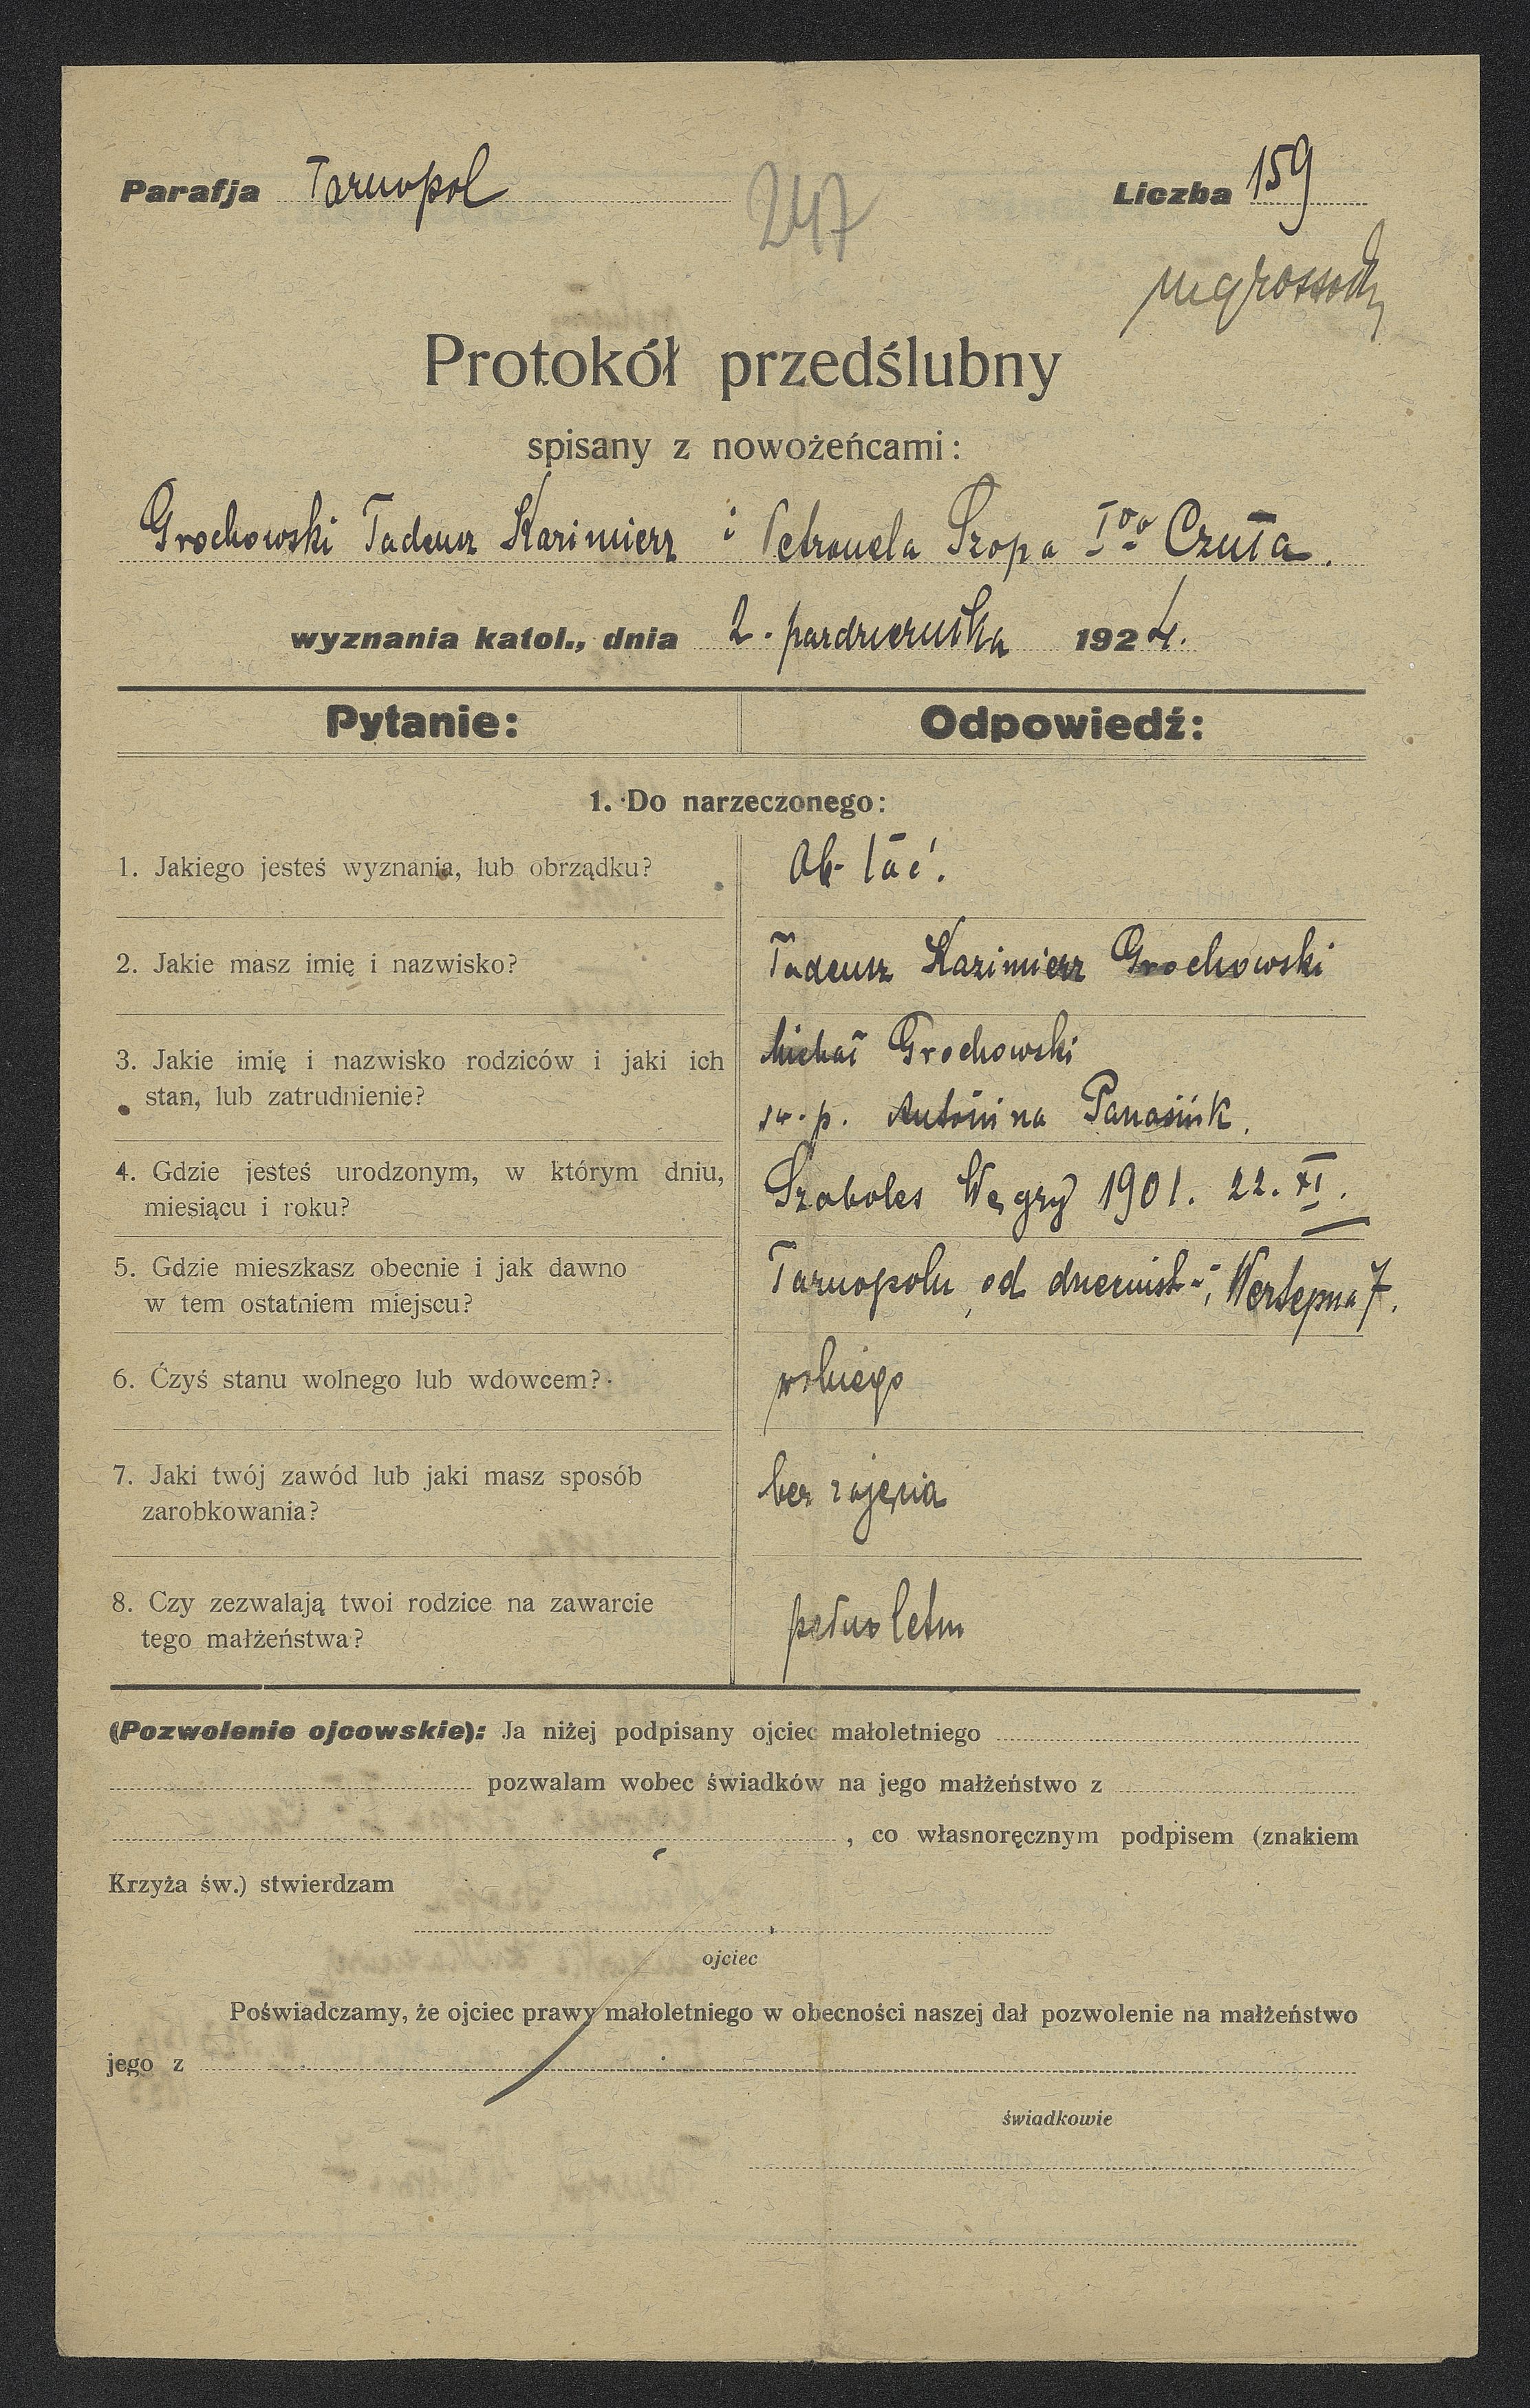 Parafja Tarnopol
247
Liczba 159
Protokół przedślubny
spisany z nowożeńcami:
Grochowski Tadeusz Kazimierz i Petronela Szopa Iᵒ ᵛᵒ Czuła.
wyznania katol., dnia 2. października 1924.
Pytanie: Odpowiedź:
1. Do narzeczonego:
1. Jakiego jesteś wyznania, lub obrządku? Ob. łać.
2. Jakie masz imię i nazwisko? Tadeusz Kazimierz Grochowski
3. Jakie imię i nazwisko rodziców i jaki ich Michał Grochowski
stan, lub zatrudnienie? św. p. Antonina Panasiuk.
4. Gdzie jesteś urodzonym, w którym dniu,
miesiącu i roku? Szabolcs Węgry 1901. 22. XI.
5. Gdzie mieszkasz obecnie i jak dawno
w tem ostatniem miejscu? Tarnopolu, od Wertepna 7.
6. Czyś stanu wolnego lub wdowcem? wolnego
7. Jaki twój zawód lub jaki masz sposób
zarobkowania? bez zajęcia
8. Czy zezwalają twoi rodzice na zawarcie
tego małżeństwa? pełnoletni
(Pozwolenie ojcowskie): Ja niżej podpisany ojciec małoletniego
pozwalam wobec świadków na jego małżeństwo z
, co własnoręcznym podpisem (znakiem
Krzyża św.) stwierdzam
ojciec
Poświadczamy, że ojciec prawy małoletniego w obecności naszej dał pozwolenie na małżeństwo
jego z
świadkowie